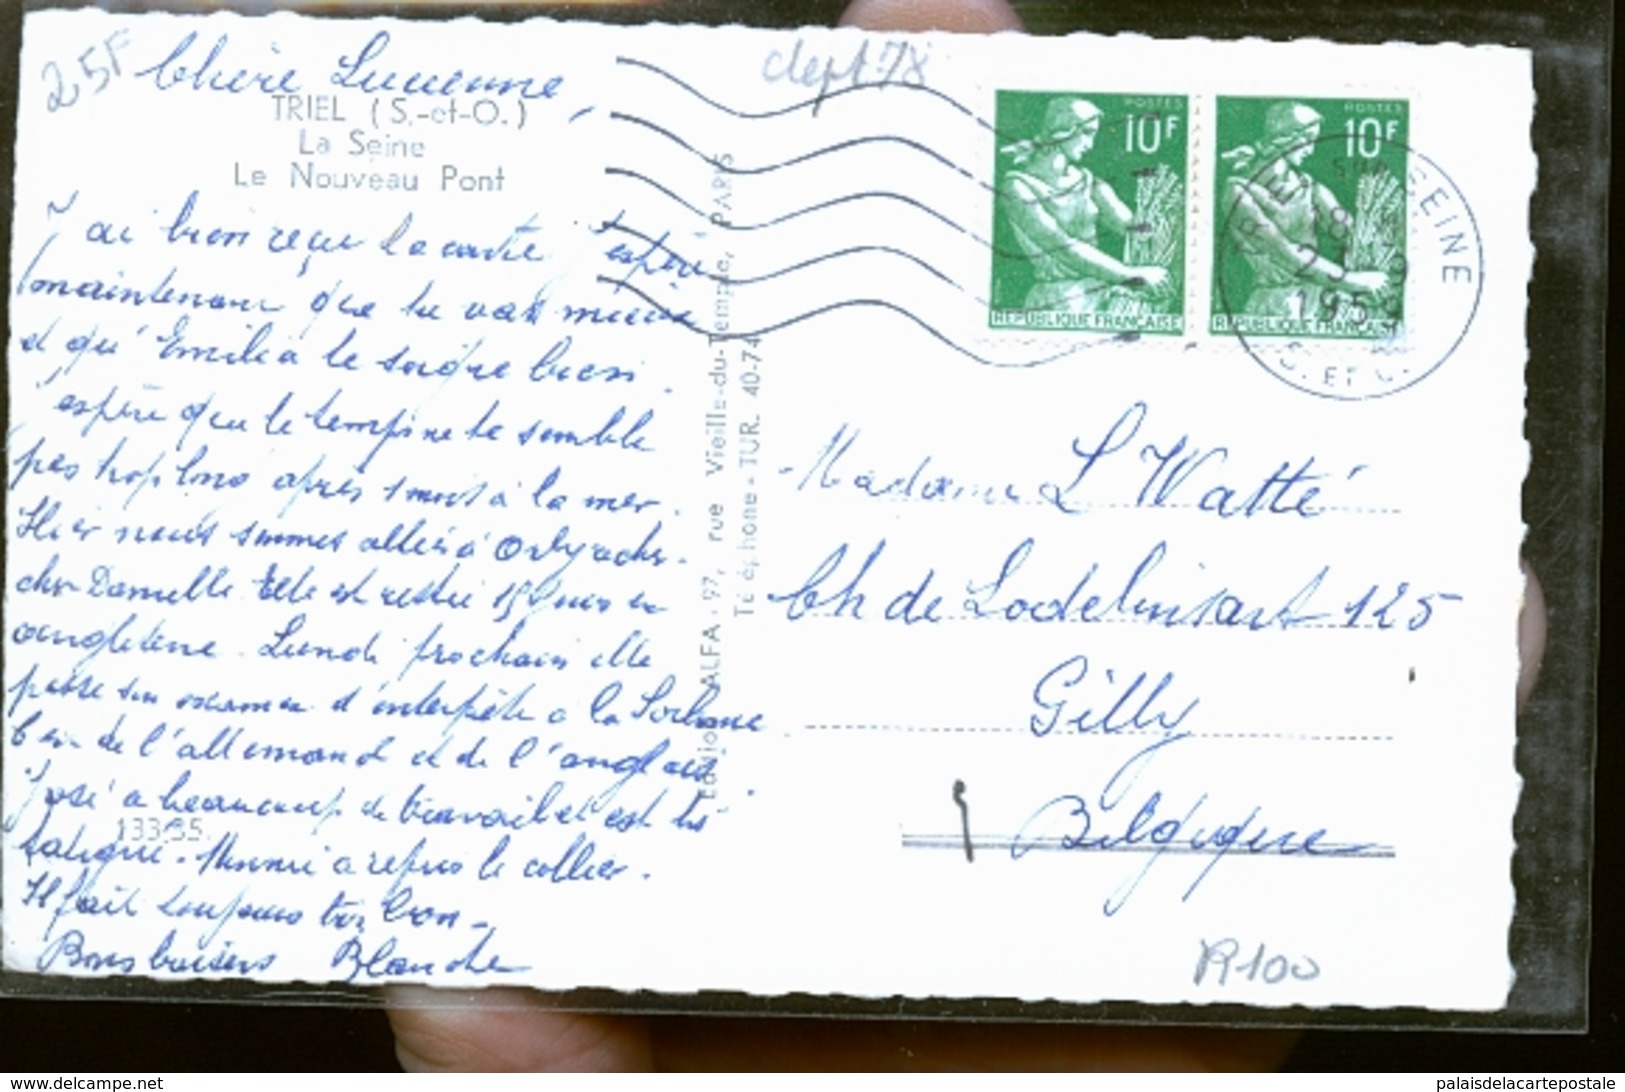 25F
Chère Lucienne,
TRIEL (S.-et-O.)
La Seine
Le Nouveau Pont
J'ai bien reçu la carte J'espère
maintenant que tu vas mieux
et qu'Emilia te soigne bien.
J'espère que le temps ne te semble
pas trop long après 1 mois à la mer.
Hier nous sommes allés à Orly recher-
cher Danielle Elle est restée 15 jours en
angleterre. Lundi prochain elle
passe son examen d'interprète à la Sorbonne
de l'allemand et de l'anglais
José a beaucoup de travail et est très
13335
fatigué. Mimi a repris le collier.
Il fait toujours très bon.
Bons baisers Blanche
ALFA - 97, rue Vieille-du-Temple, PARIS
Téléphone - TUR. 40-74
dept 78
POSTES
10F
REPUBLIQUE FRANÇAISE
POSTES
10F
REPUBLIQUE FRANÇAISE
TRIEL SUR SEINE
18 H
23 - 9
1959
S. ET O.
Madame L Watté
Ch de Lodelinsart 125
Gilly
Belgique
R100
www.delcampe.net
palaisdelacartepostale